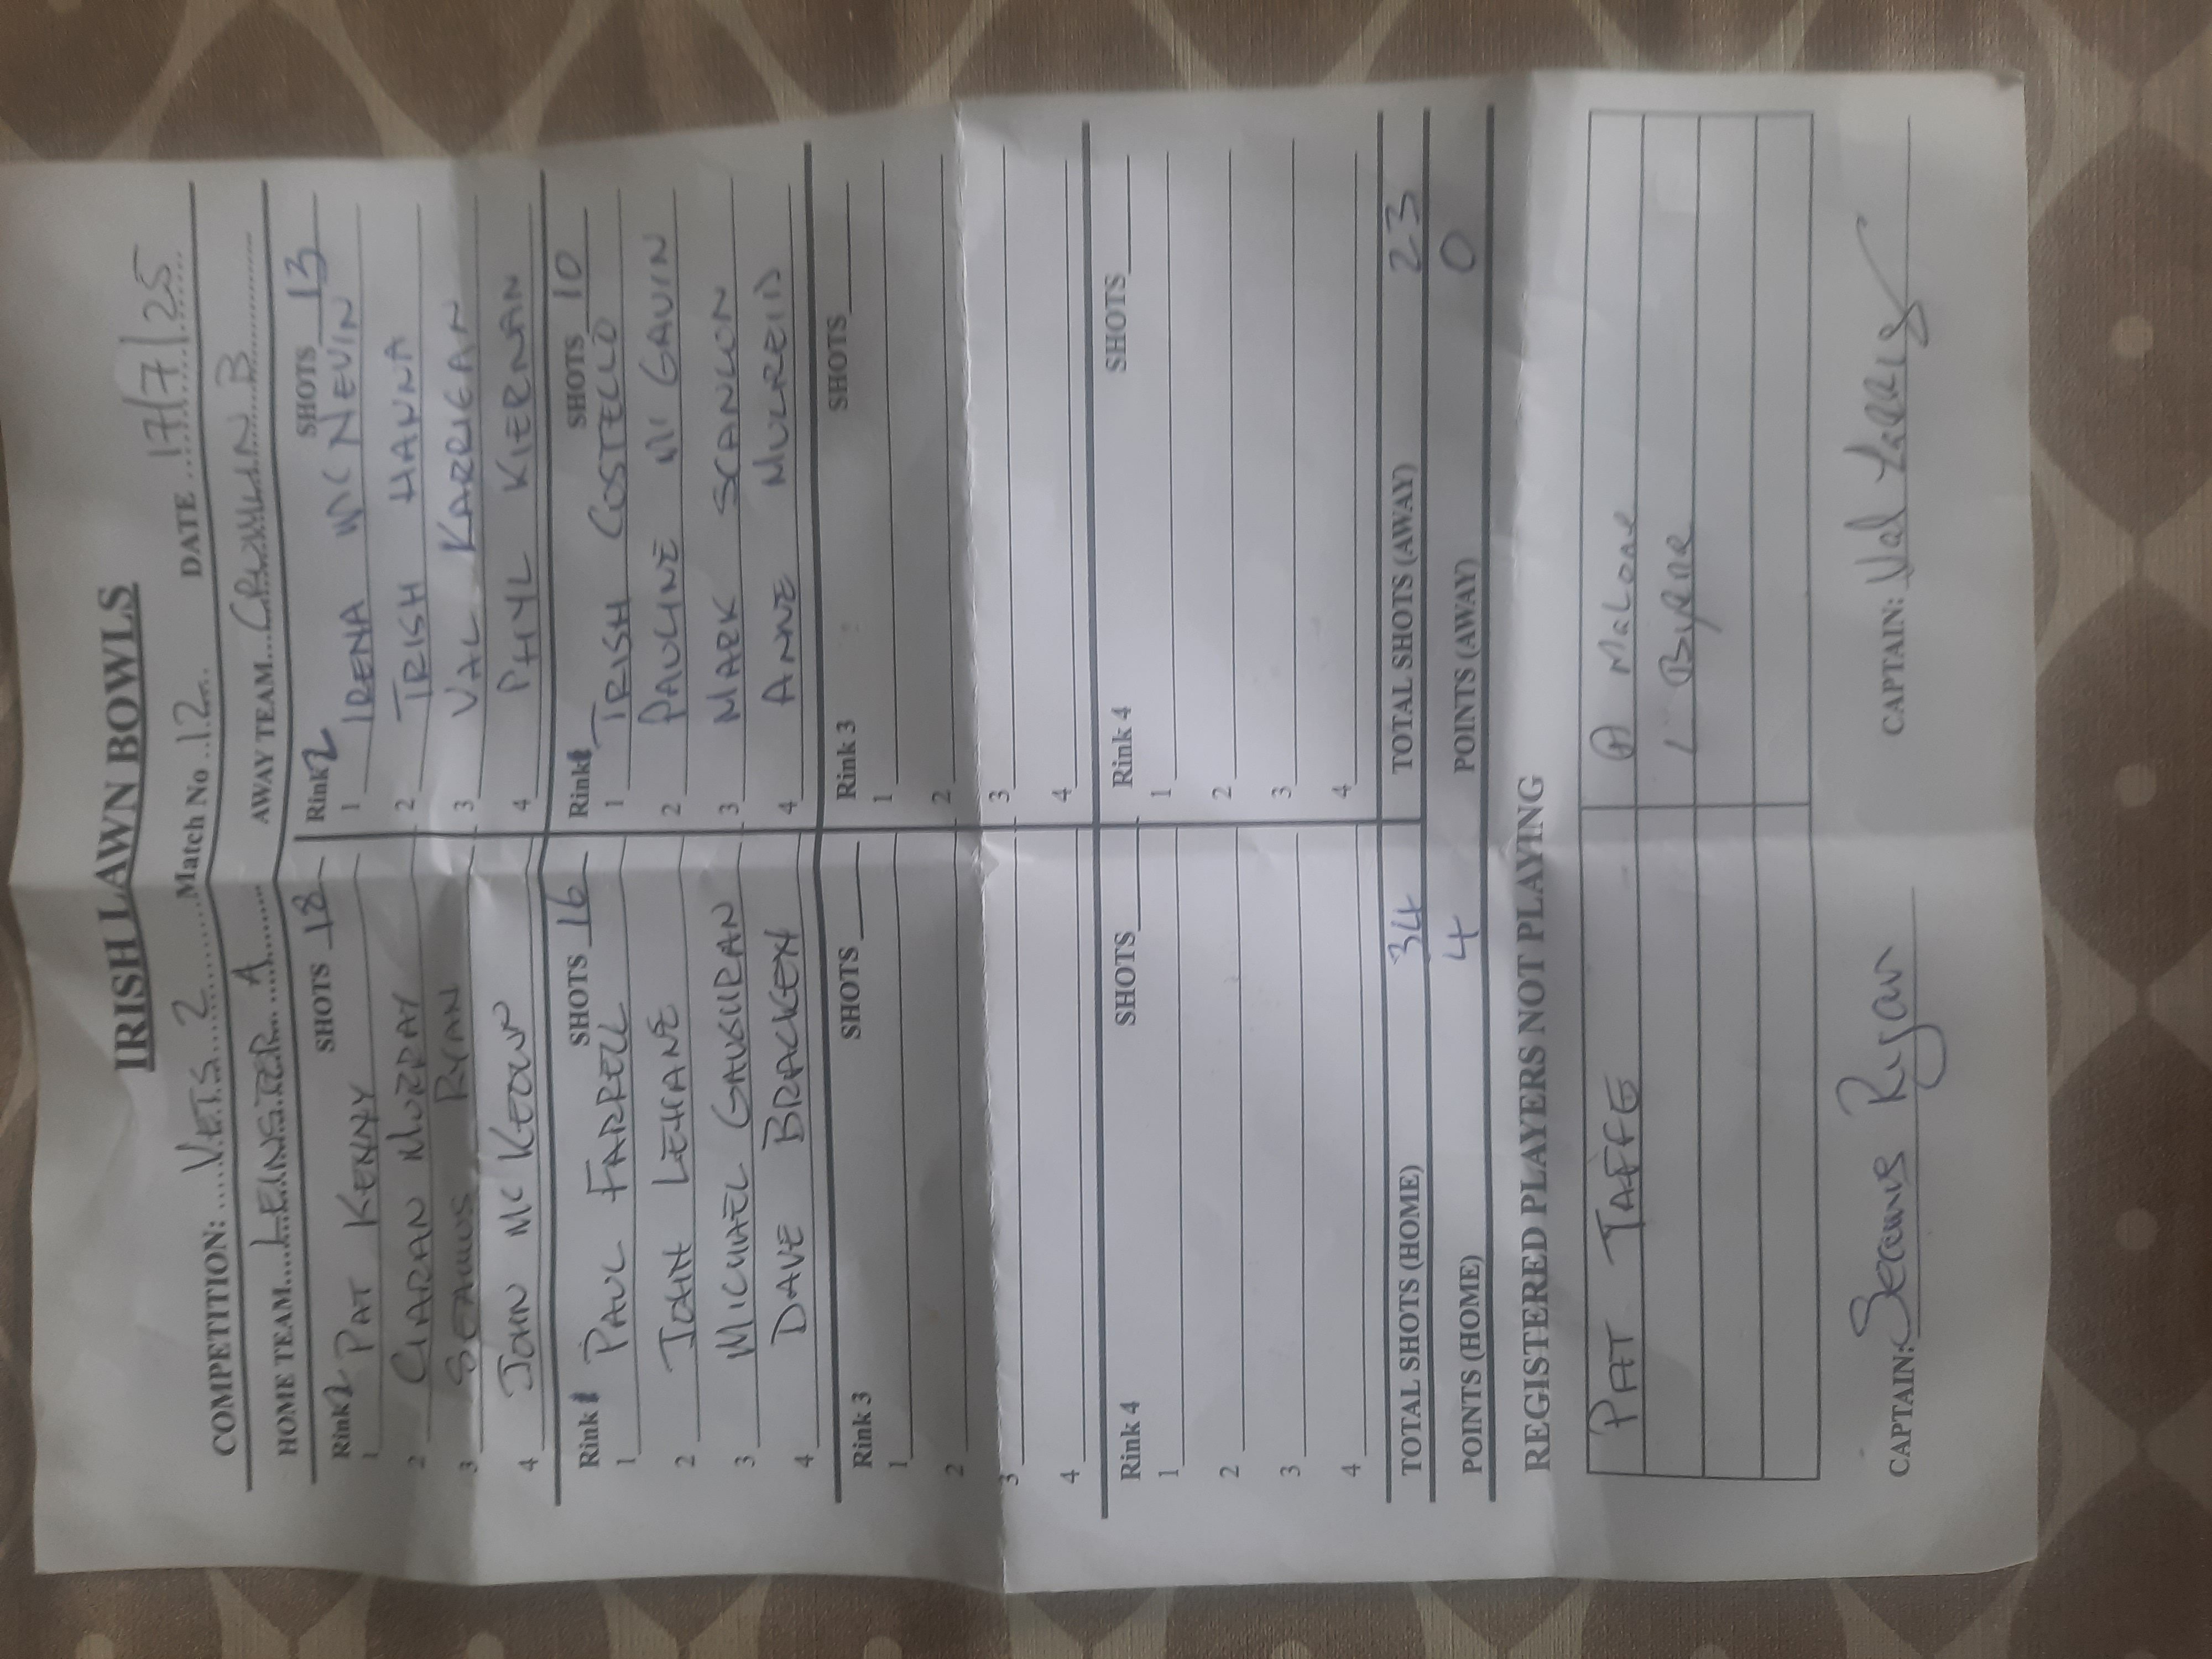 IRISH LAWN BOWLS
COMPETITION: VETS 2 Match No 12 DATE 17/7/25
HOME TEAM LEINSTER A AWAY TEAM CRUMLIN B
Rink 2 SHOTS 18 Rink 2 SHOTS 13
1 PAT KENNY 1 IRENA MC NEVIN
2 CIARAN MURRAY 2 TRISH HANNA
3 SEAMUS RYAN 3 VAL KARRIGAN
4 JOHN MC KEOWN 4 PHYL KIERNAN
Rink 1 SHOTS 16 Rink 1 SHOTS 10
1 PAUL FARRELL 1 TRISH COSTELLO
2 JOHN LEHANE 2 PAULINE MC GAVIN
3 MICHAEL GAUGHRAN 3 MARK SCANLON
4 DAVE BRACKEN 4 ANNE MULREID
Rink 3 SHOTS Rink 3 SHOTS
1 1
2 2
3 3
4 4
Rink 4 SHOTS Rink 4 SHOTS
1 1
2 2
3 3
4 4
TOTAL SHOTS (HOME) 34 TOTAL SHOTS (AWAY) 23
POINTS (HOME) 4 POINTS (AWAY) 0
REGISTERED PLAYERS NOT PLAYING
PAT TAFFE A Malone
L Byrne
CAPTAIN: Seamus Ryan CAPTAIN: Val